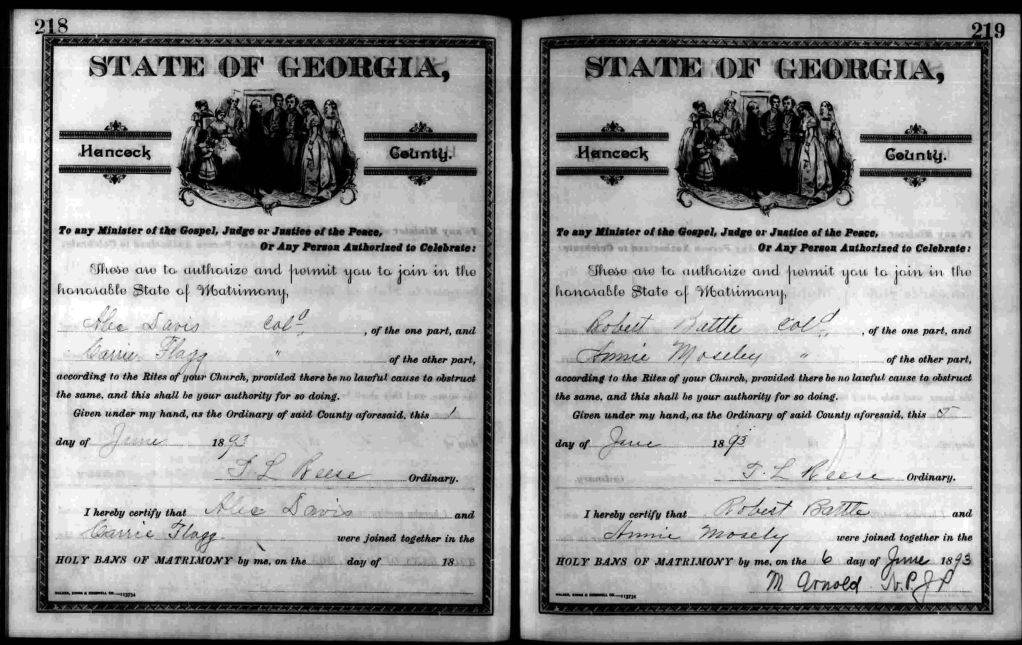 218
STATE OF GEORGIA,
Hancock County.
To any Minister of the Gospel, Judge or Justice of the Peace,
Or Any Person Authorized to Celebrate:
These are to authorize and permit you to join in the
honorable State of Matrimony,
Alec Davis Cold, of the one part, and
Carrie Flagg " of the other part,
according to the Rites of your Church, provided there be no lawful cause to obstruct
the same, and this shall be your authority for so doing.
Given under my hand, as the Ordinary of said County aforesaid, this 1
day of June 1893
T. L Reese Ordinary.
I hereby certify that Alec Davis and
Carrie Flagg were joined together in the
HOLY BANS OF MATRIMONY by me, on the day of 18
219
STATE OF GEORGIA,
Hancock County.
To any Minister of the Gospel, Judge or Justice of the Peace,
Or Any Person Authorized to Celebrate:
These are to authorize and permit you to join in the
honorable State of Matrimony,
Robert Battle Cold, of the one part, and
Annie Moseley " of the other part,
according to the Rites of your Church, provided there be no lawful cause to obstruct
the same, and this shall be your authority for so doing.
Given under my hand, as the Ordinary of said County aforesaid, this 5
day of June 1893
T. L Reese Ordinary.
I hereby certify that Robert Battle and
Annie Mosely were joined together in the
HOLY BANS OF MATRIMONY by me, on the 6 day of June 1893
M Arnold N.P.J P